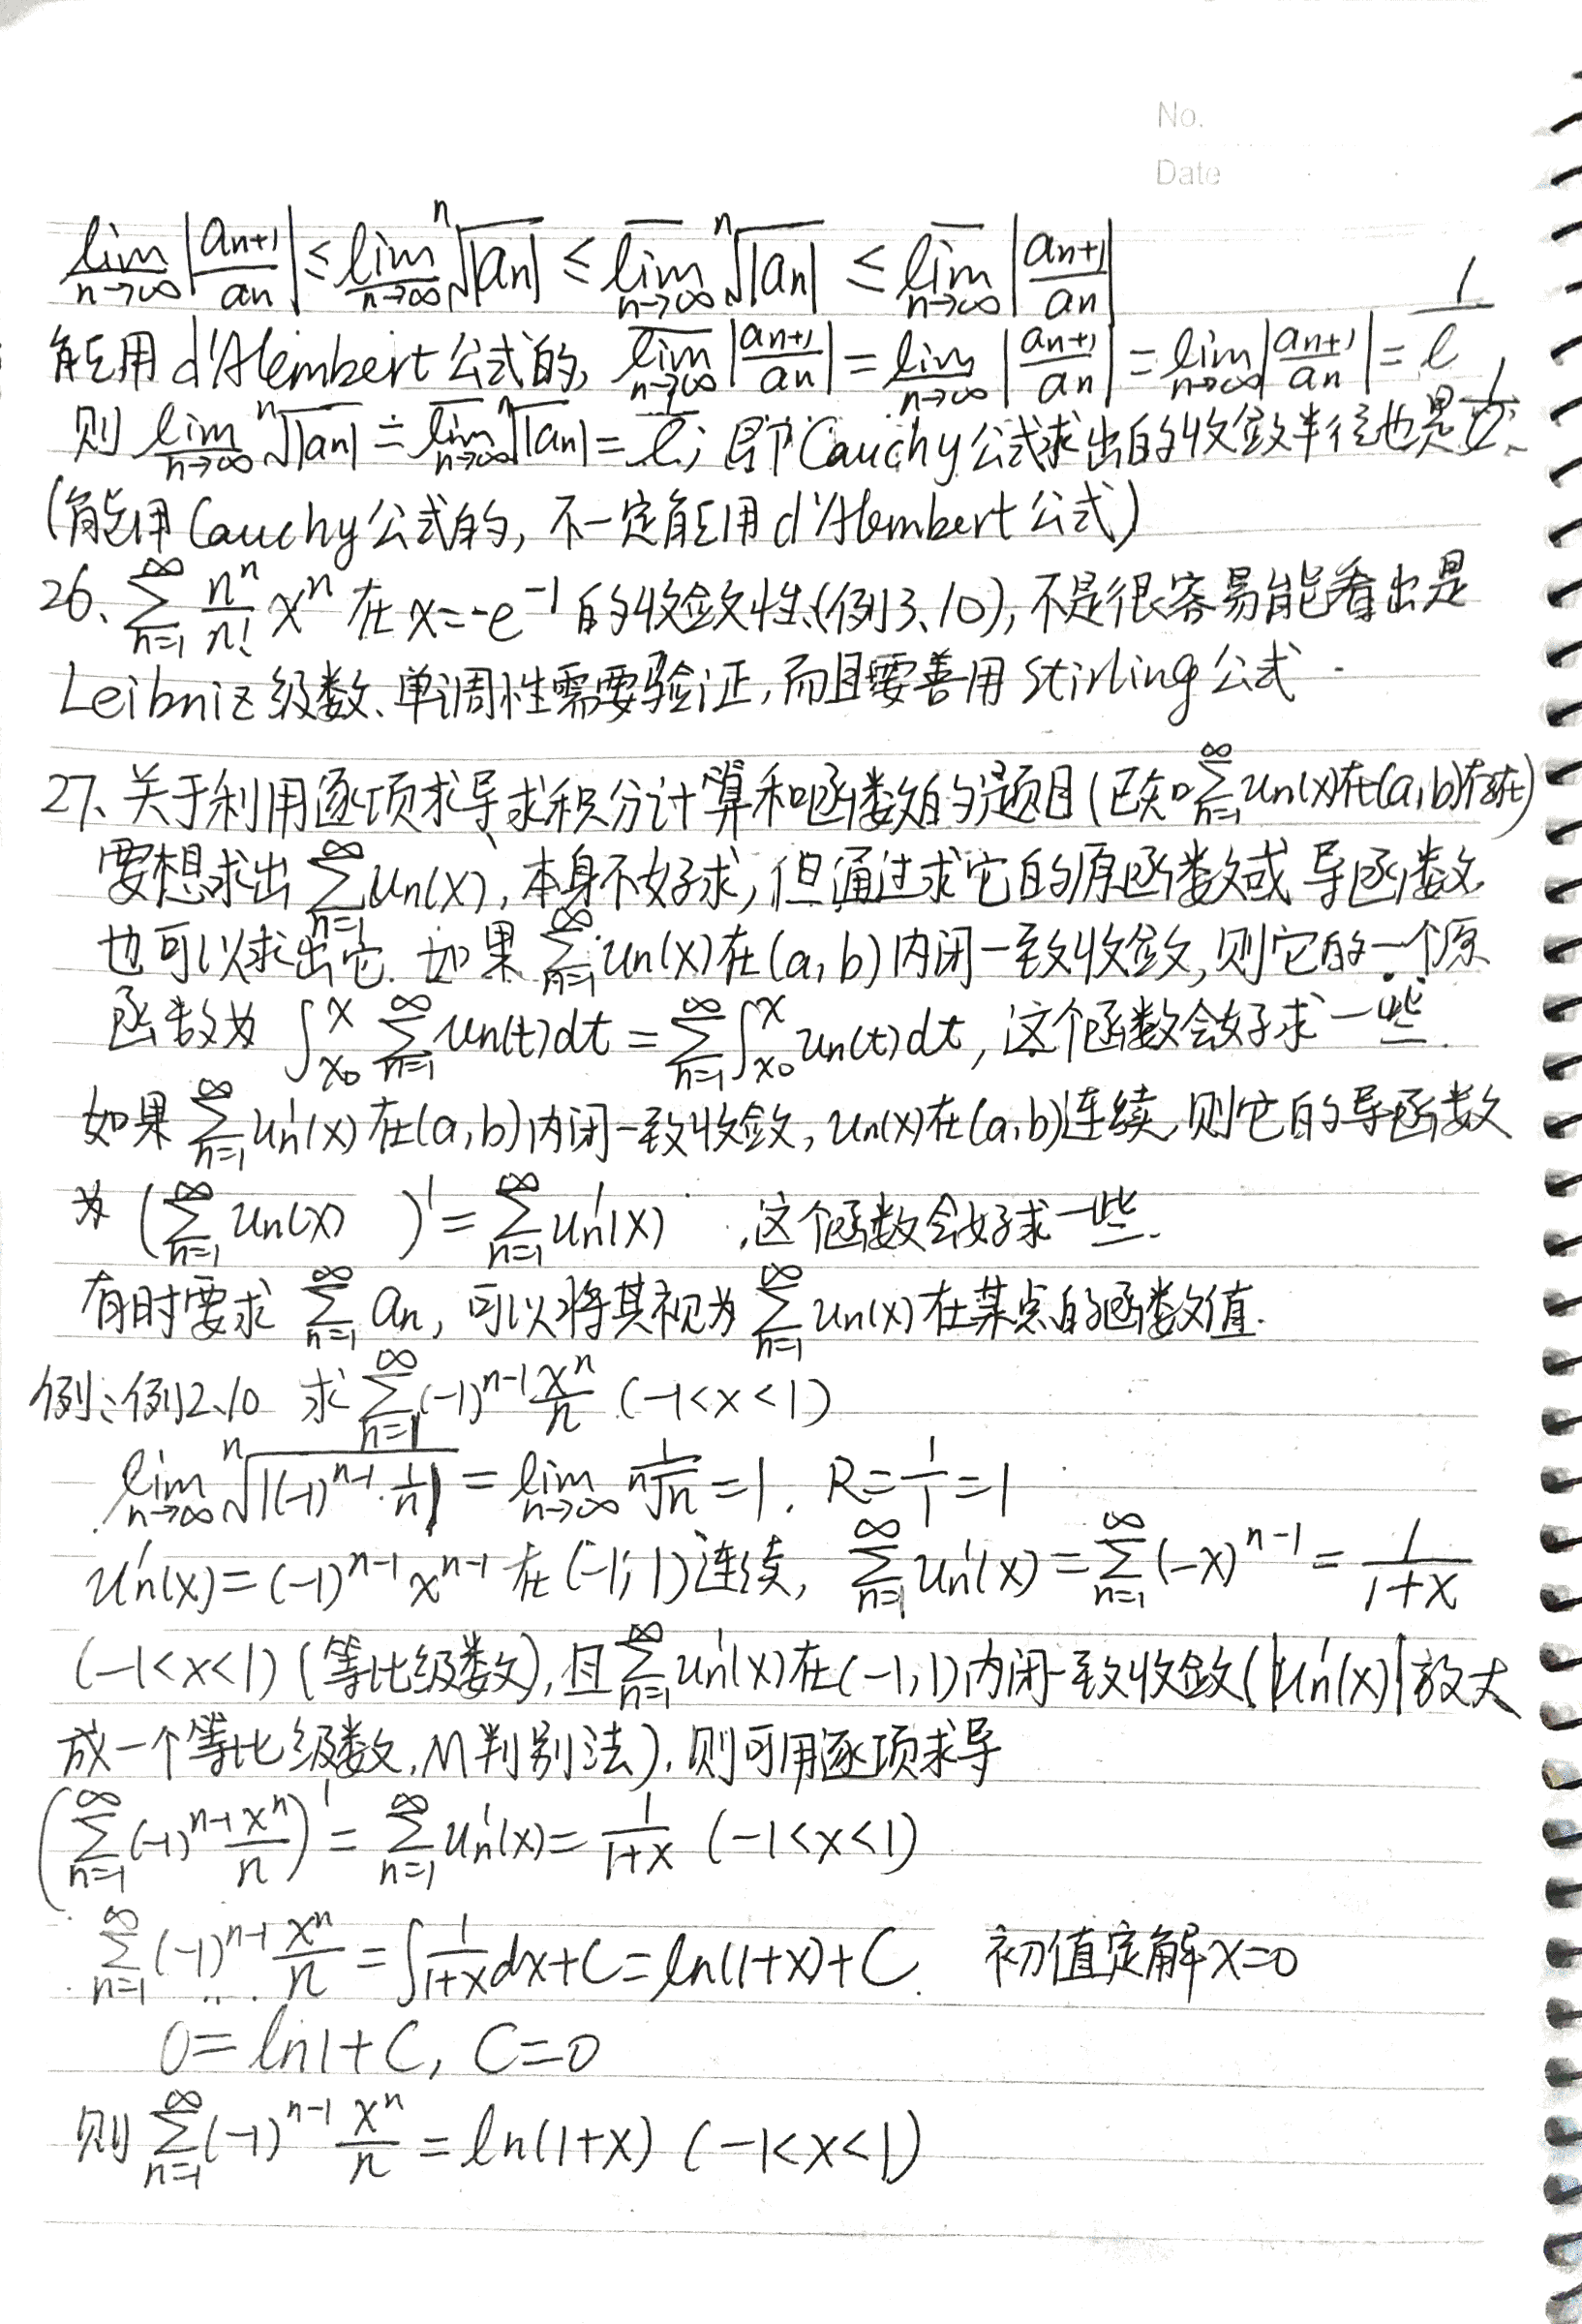 No.
Date
$\varliminf_{n\to\infty}\left|\frac{a_{n+1}}{a_n}\right| \le \varliminf_{n\to\infty}\sqrt[n]{|a_n|} \le \varlimsup_{n\to\infty}\sqrt[n]{|a_n|} \le \varlimsup_{n\to\infty}\left|\frac{a_{n+1}}{a_n}\right|$
能用d'Alembert公式的, $\varlimsup_{n\to\infty}\left|\frac{a_{n+1}}{a_n}\right| = \varliminf_{n\to\infty}\left|\frac{a_{n+1}}{a_n}\right| = \lim_{n\to\infty}\left|\frac{a_{n+1}}{a_n}\right| = l$
则 $\varliminf_{n\to\infty}\sqrt[n]{|a_n|} = \varlimsup_{n\to\infty}\sqrt[n]{|a_n|} = l$; 即Cauchy公式求出的收敛半径也是 $\frac{1}{l}$.
(能用Cauchy公式的, 不一定能用d'Alembert公式)
26、$\sum_{n=1}^{\infty}\frac{n^n}{n!}x^n$ 在 $x=-e^{-1}$ 的收敛性(例3、10), 不是很容易能看出是
Leibniz级数、单调性需要验证, 而且要善用Stirling公式.
27、关于利用逐项求导求积分计算和函数的题目(已知 $\sum_{n=1}^{\infty}u_n(x)$ 在(a,b)存在)
要想求出 $\sum_{n=1}^{\infty}u_n(x)$, 本身不好求, 但通过求它的原函数或导函数
也可以求出它. 如果 $\sum_{n=1}^{\infty}u_n(x)$ 在(a,b)内闭一致收敛, 则它的一个原
函数为 $\int_{x_0}^{x}\sum_{n=1}^{\infty}u_n(t)dt = \sum_{n=1}^{\infty}\int_{x_0}^{x}u_n(t)dt$, 这个函数会好求一些.
如果 $\sum_{n=1}^{\infty}u_n'(x)$ 在(a,b)内闭一致收敛, $u_n(x)$ 在(a,b)连续, 则它的导函数
为 $\left(\sum_{n=1}^{\infty}u_n(x)\right)' = \sum_{n=1}^{\infty}u_n'(x)$, 这个函数会好求一些.
有时要求 $\sum_{n=1}^{\infty}a_n$, 可以将其视为 $\sum_{n=1}^{\infty}u_n(x)$ 在某点的函数值.
例: 例12、10 求 $\sum_{n=1}^{\infty}(-1)^{n-1}\frac{x^n}{n}$ $(-1<x<1)$
$\lim_{n\to\infty}\sqrt[n]{|(-1)^{n-1}\cdot\frac{1}{n}|} = \lim_{n\to\infty}\frac{1}{\sqrt[n]{n}} = 1$. $R=\frac{1}{1}=1$
$u_n'(x)=(-1)^{n-1}x^{n-1}$ 在(-1,1)连续, $\sum_{n=1}^{\infty}u_n'(x)=\sum_{n=1}^{\infty}(-x)^{n-1}=\frac{1}{1+x}$
(-1<x<1) (等比级数), 且 $\sum_{n=1}^{\infty}u_n'(x)$ 在(-1,1)内闭一致收敛($|u_n'(x)|$ 放大
成一个等比级数, M判别法). 则可用逐项求导
$\left(\sum_{n=1}^{\infty}(-1)^{n-1}\frac{x^n}{n}\right)' = \sum_{n=1}^{\infty}u_n'(x)=\frac{1}{1+x}$ $(-1<x<1)$
$\sum_{n=1}^{\infty}(-1)^{n-1}\frac{x^n}{n}=\int\frac{1}{1+x}dx+C=\ln(1+x)+C$. 初值定解x=0
$0=\ln 1+C, C=0$
则 $\sum_{n=1}^{\infty}(-1)^{n-1}\frac{x^n}{n}=\ln(1+x)$ $(-1<x<1)$